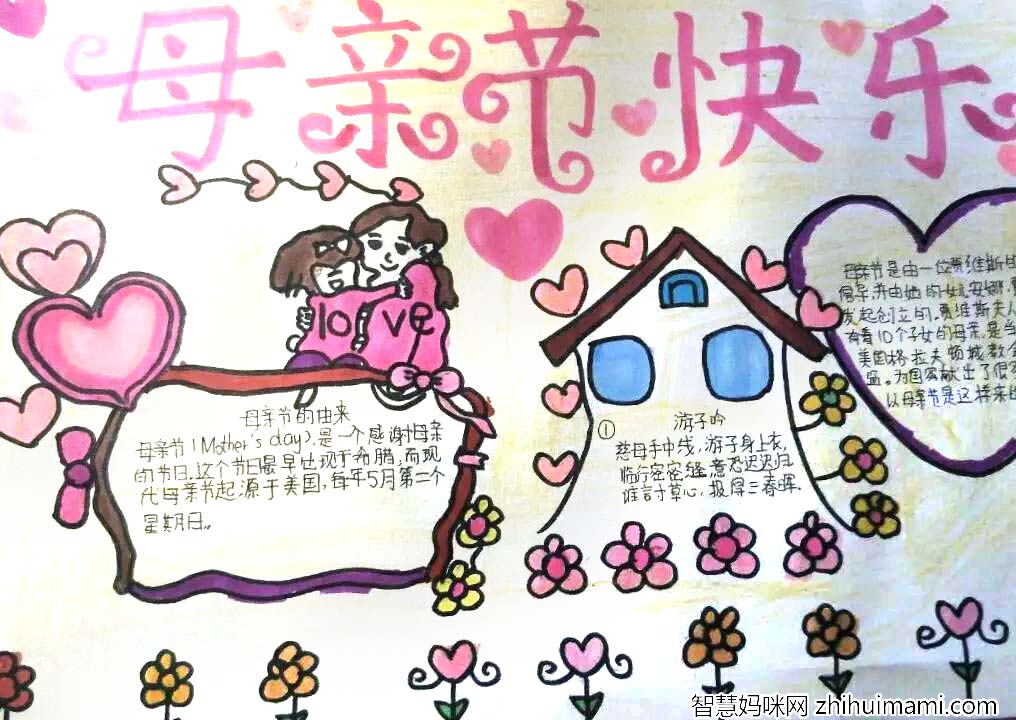 母亲节快乐
love
母亲节的由来
母亲节(Mother's day),是一个感谢母亲
的节日,这个节日最早出现于希腊,而现
代母亲节起源于美国,每年5月第二个
星期日。
①
游子吟
慈母手中线,游子身上衣,
临行密密缝,意恐迟迟归
谁言寸草心,报得三春晖.
母亲节是由一位贾维斯的
倡导,并由她的女儿安娜,
发起创立的.贾维斯夫人
有着10个子女的母亲,是当
美国格拉夫顿城教会
为国家献出了很多
以母亲节是这样来的
智慧妈咪网 zhihuimami.com